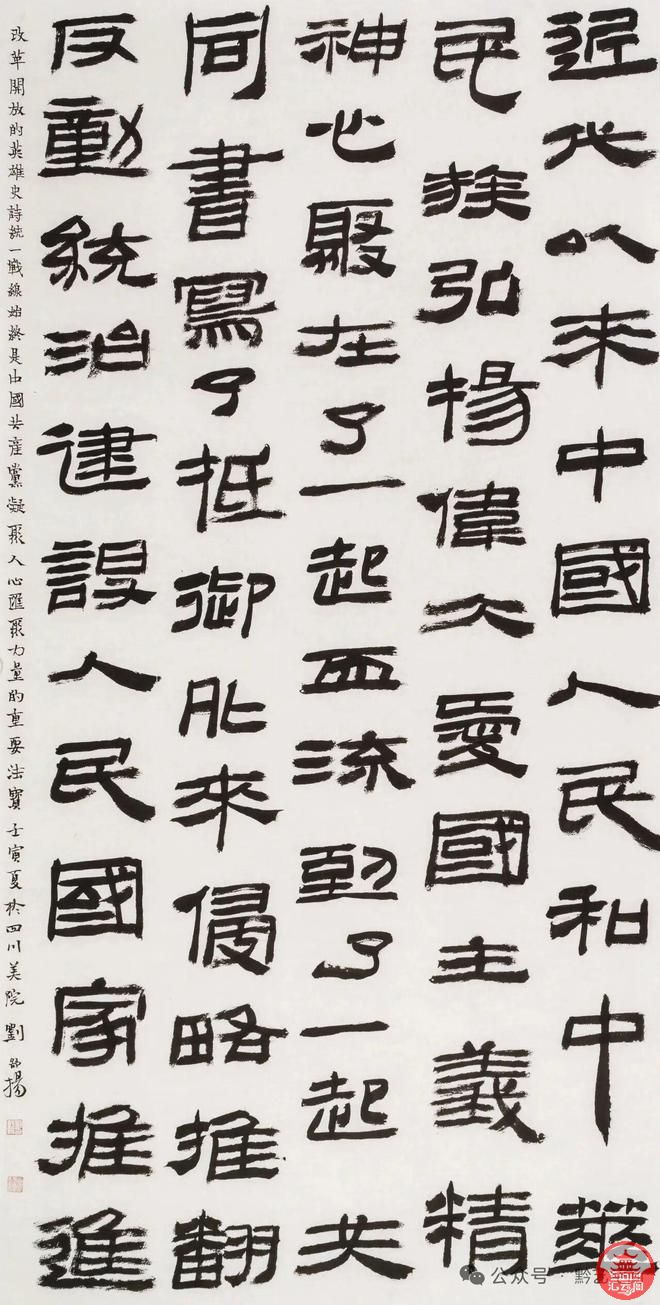 近代以來中國人民和中華
民族弘揚偉大愛國主義精
神心聚在了一起血流到了一起共
同書寫了抵御外來侵略推翻
反動統治建設人民國家推進
改革開放的英雄史詩統一戰線始終是中國共產黨凝聚人心匯聚力量的重要法寶 壬寅夏於四川美院 劉揚
公众号 · 黔